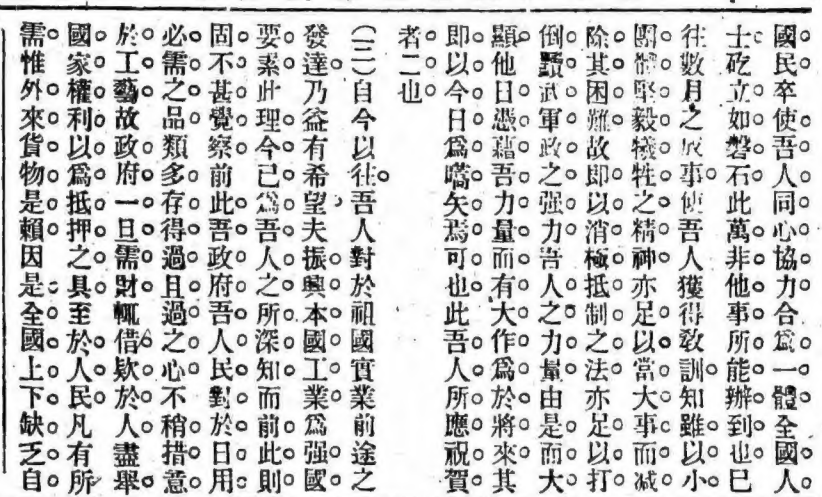 國民卒使吾人同心協力合爲一體全國人
士矻立如磐石此萬非他事所能辦到也已
往數月之成事使吾人獲得教訓知雖以小
團體堅毅犧牲之精神亦足以當大事而減
除其困難故即以消極抵制之法亦足以打
倒黷武軍政之强力吾人之力量由是而大
顯他日憑藉吾力量而有大作爲於將來其
即以今日爲嚆矢焉可也此吾人所應祝賀
者二也
(三)自今以往吾人對於祖國實業前途之
發達乃益有希望夫振興本國工業爲强國
要素此理今已爲吾人之所深知而前此則
固不甚覺察前此吾政府吾人民對於日用
必需之品類多存得過且過之心不稍措意
於工藝故政府一旦需財輒借欵於人盡舉
國家權利以爲抵押之具至於人民凡有所
需惟外來貨物是賴因是全國上下缺乏自